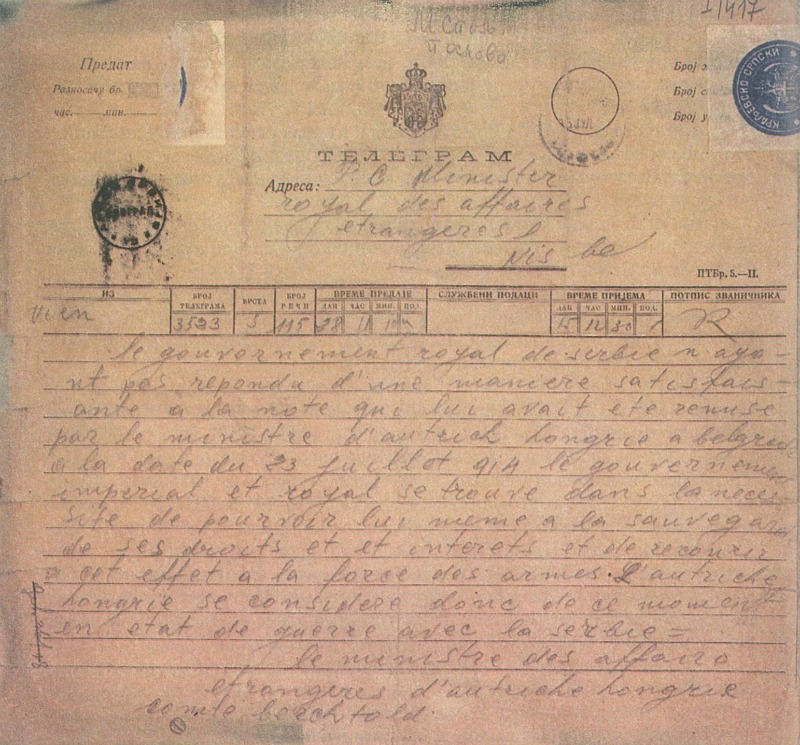 1/417
Предат
Разносачу бр.
час. мин.
Број
Број
Број
КРАЉЕВСКО-СРПСКИ
ТЕЛЕГРАМ
Адреса: P. C Minister
royal des affaires
etrangeres
Nis
ПТБр. 5.—II.
ИЗ БРОЈ ТЕЛЕГРАМА ВРСТА БРОЈ РЕЧИ ВРЕМЕ ПРЕДАЈЕ СЛУЖБЕНИ ПОДАЦИ ВРЕМЕ ПРИЈЕМА ПОТПИС ЗВАНИЧНИКА
ДАН ЧАС МИН. ПОД. ДАН ЧАС МИН. ПОД.
Wien 3523 115 28 11 10 15 12 30 R
le gouvernement royal de serbie n aya-
nt pas repondu d'une maniere satisfais-
ante a la note qui lui avait ete remise
par le ministre d'autrich hongrie a belgrade
a la date du 23 juillot 914 le gouvernement
imperial et royal se trouve dans la neces
site de pourvoir lui meme a la sauvegar
de ses droits et et interets et de recourir
a cet effet a la force des armes. L'autriche
hongrie se considere donc de ce moment
en etat de guerre avec la serbie =
le ministre des affaire
etrangeres d'autriche hongrie
comte berchtold.